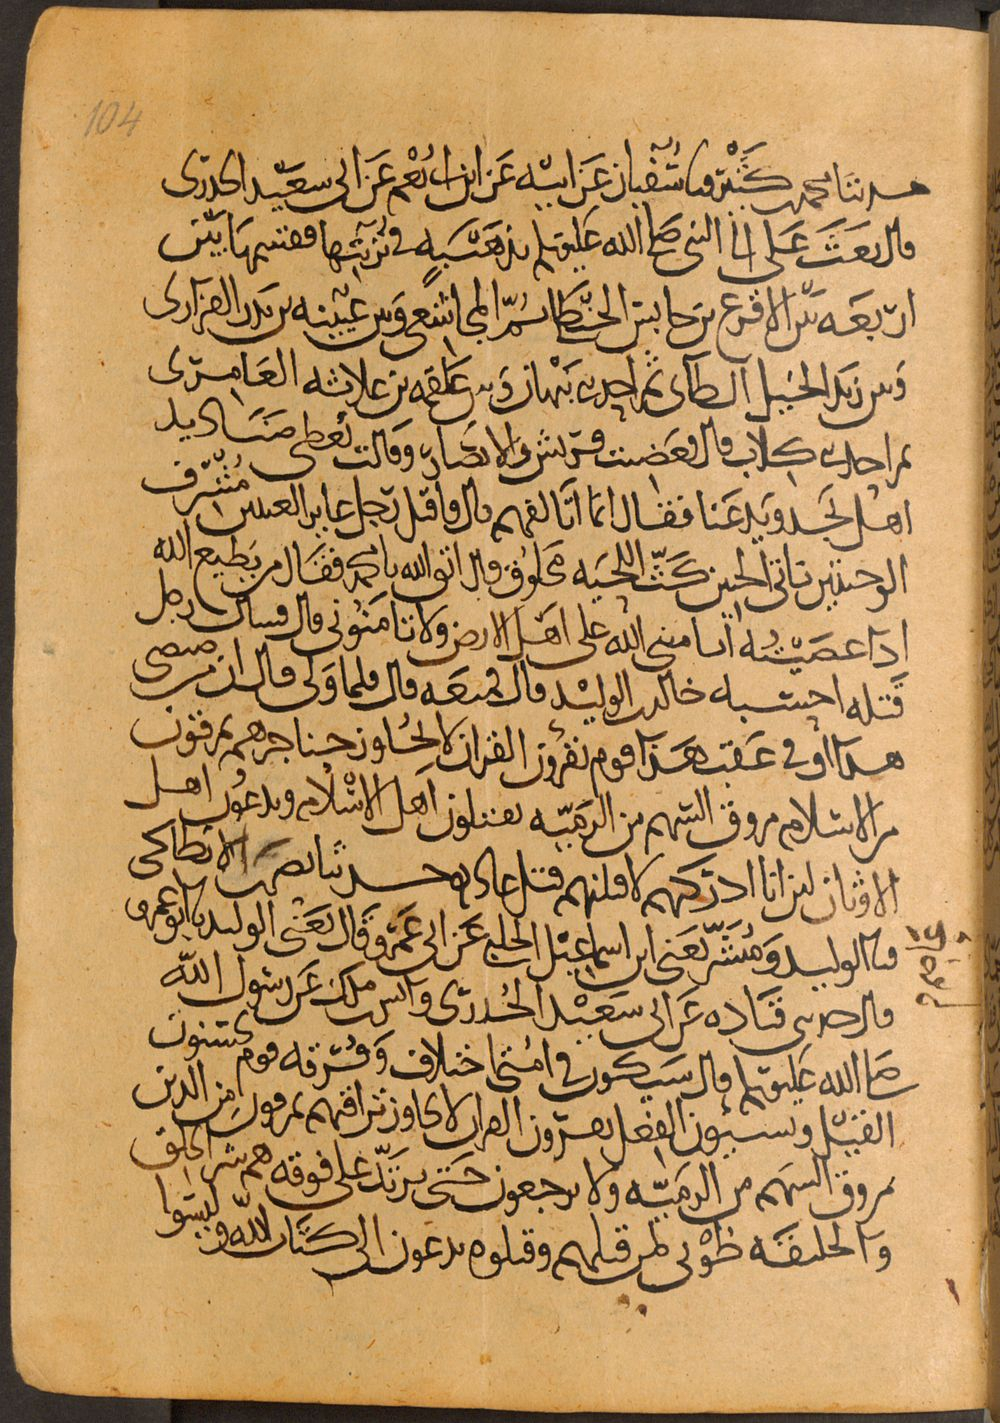 104
حدثنا محمد بن كثير نا سفيان عن ابيه عن ابن ابي نعم عن ابي سعيد الخدري
قال بعث علي الى النبي صلى الله عليه وسلم بذهيبة في تربتها فقسمها بين
اربعه بين الاقرع بن حابس الحنظلي ثم المجاشعي وبين عيينه بن بدر الفزاري
وبين زيد الخيل الطآى ثم احد بني نبهان وبين علقمه بن علاثه العامري
ثم احد بني كلاب قال فغضبت قريش والانصار وقالت يعطي صناديد
اهل نجد ويدعنا فقال انما اتالفهم قال فاقبل رجل غاير العينين مشرف
الوجنتين ناتئ الجبين كث اللحيه محلوق قال اتق الله يا محمد فقال من يطيع الله
اذا عصيته ايامنني الله على اهل الارض ولا تامنوني قال فسال رجل
قتله احسبه خالد بن الوليد قال فمنعه قال فلما ولى قال ان من ضيضي
هذا او في عقب هذا قوم يقرون القران لا يجاوز حناجرهم يمرقون
من الاسلام مروق السهم من الرميه يقتلون اهل الاسلام ويدعون اهل
الاوثان لين انا ادركتهم لاقتلنهم قتل عاد حدثنا نصر بن الانطاكي
نا الوليد ومبشر يعني ابن اسماعيل الحلبي عن ابي عمرو قال يعني الوليد نا ابو عمرو
قال حدثني قتاده عن ابي سعيد الخدري وانس بن ملك عن رسول الله
صلى الله عليه وسلم قال سيكون في امتي اختلاف وفرقه قوم يحسنون
القيل ويسيون الفعل يقرون القران لا يجاوز تراقيهم يمرقون من الدين
مروق السهم من الرميه ولا يرجعون حتى يرتد على فوقه هم شر الخلق
والخليقه طوبى لمن قتلهم وقتلوه يدعون الى كتاب الله وليسوا